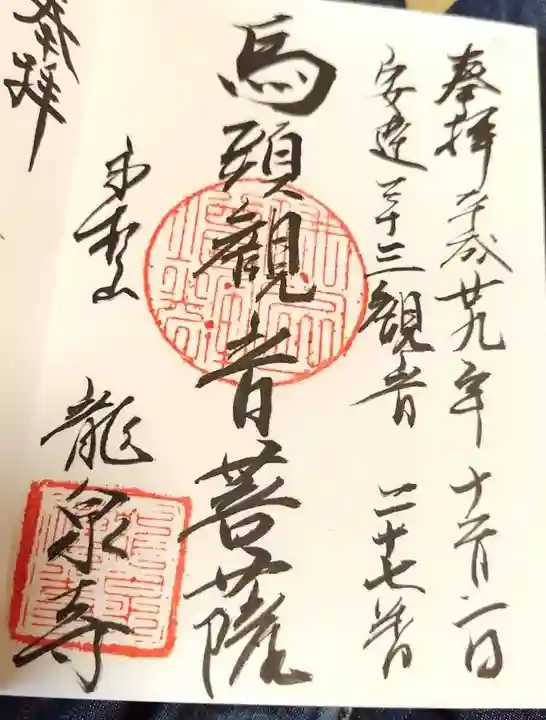 奉拝 平成廿九年 十一月二日
安達三十三観音 二十七番
馬頭観音菩薩
龍泉寺
奉拝